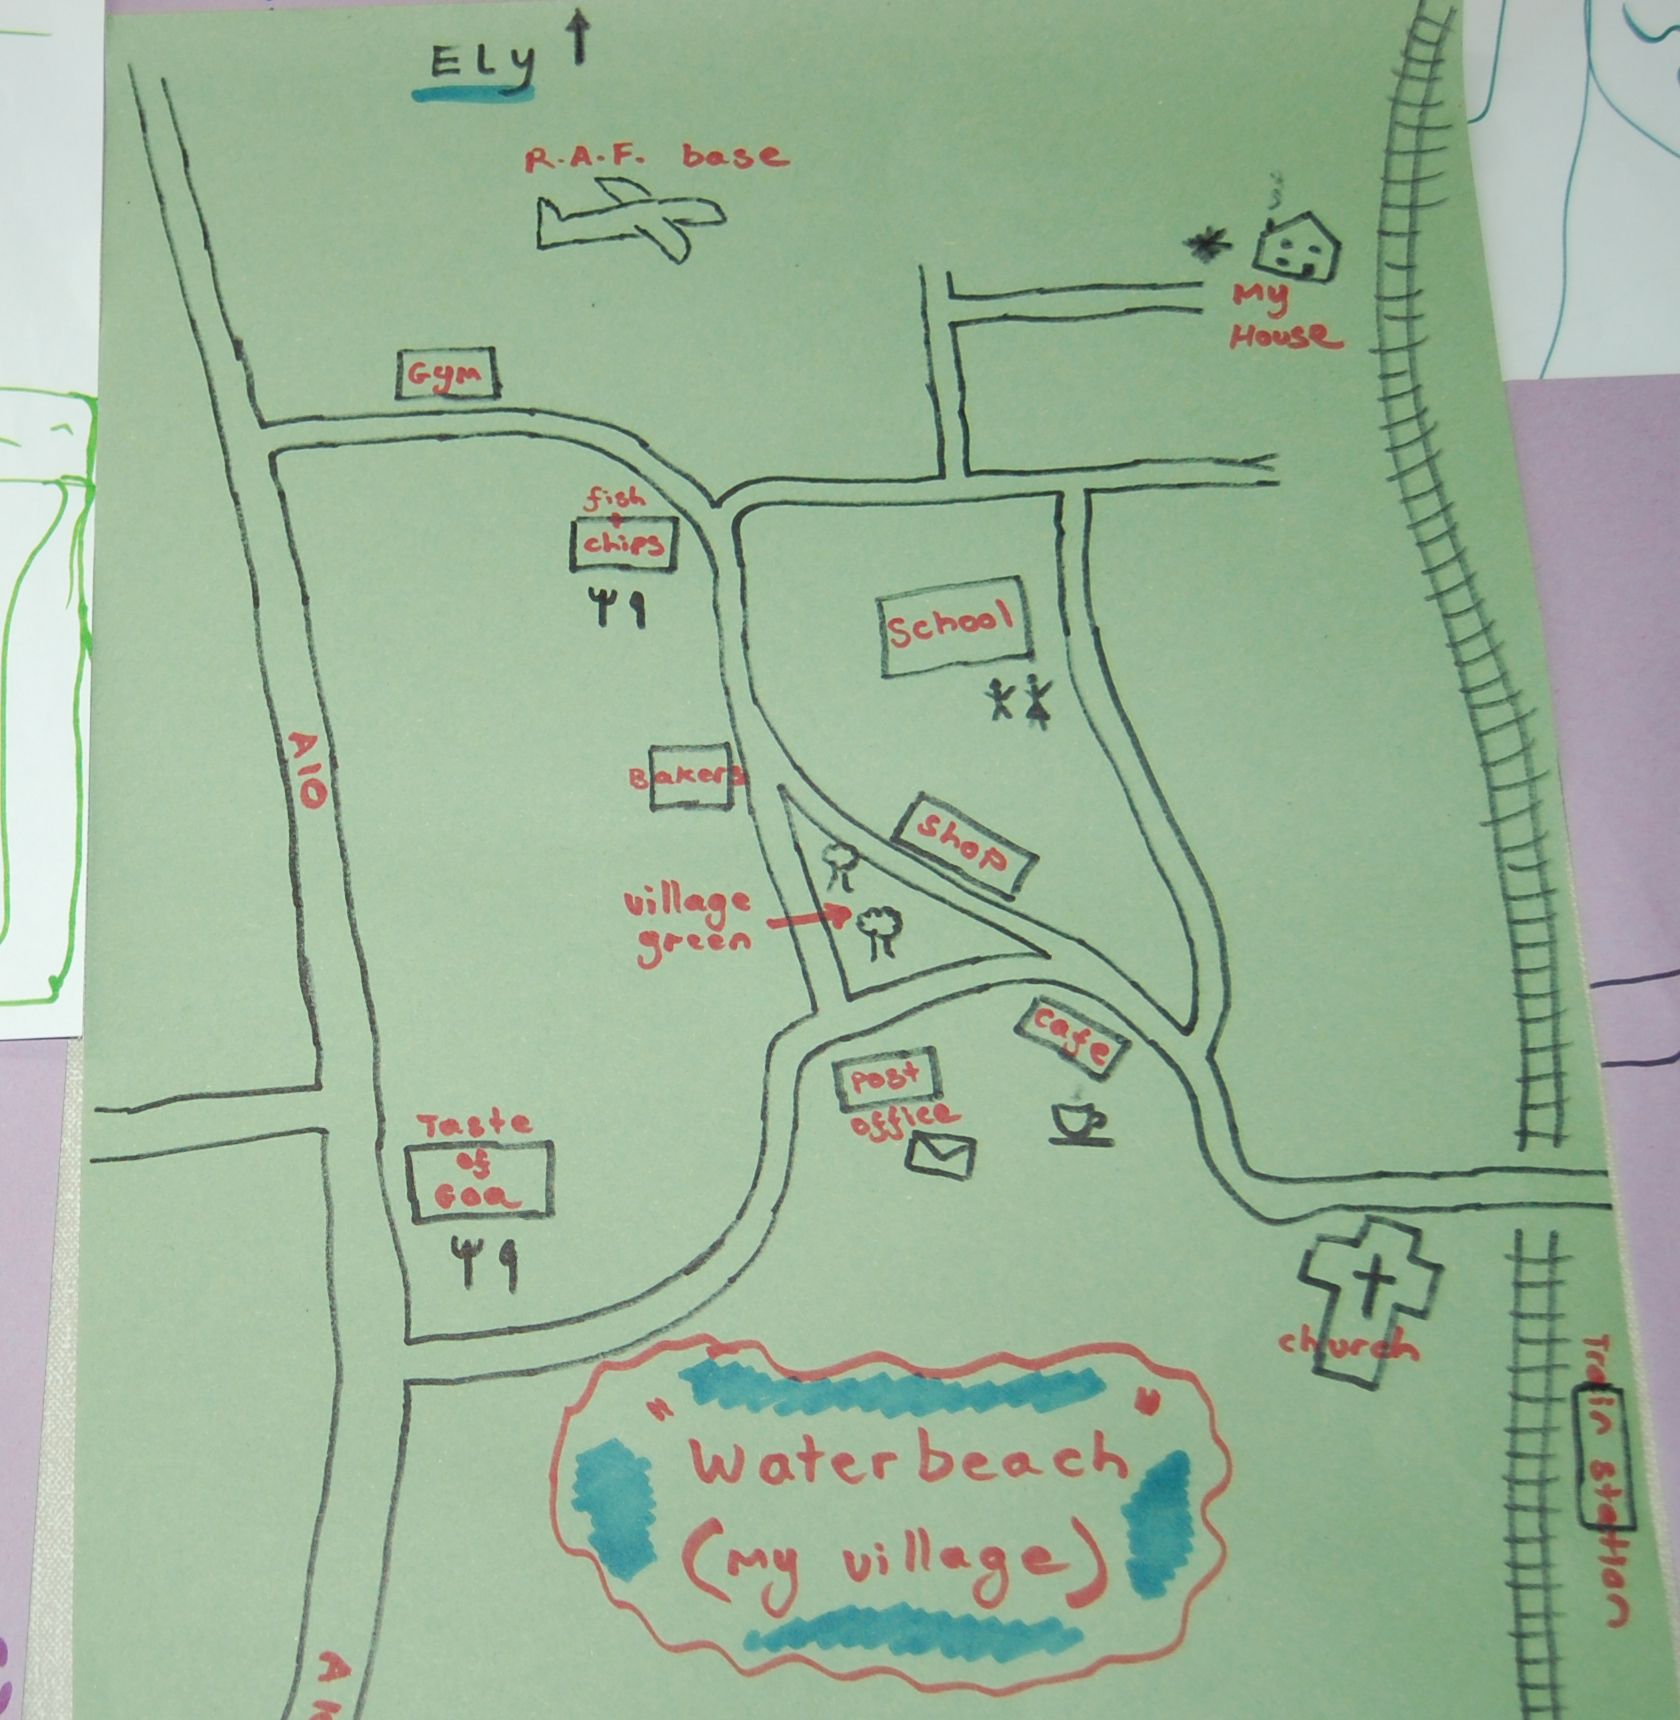 ELy
R.A.F. base
My
House
Gym
fish
+
chips
School
A10
Bakers
shop
village
green
cafe
post
office
Taste
of
Goa
church
Train station
"Waterbeach"
(my village)